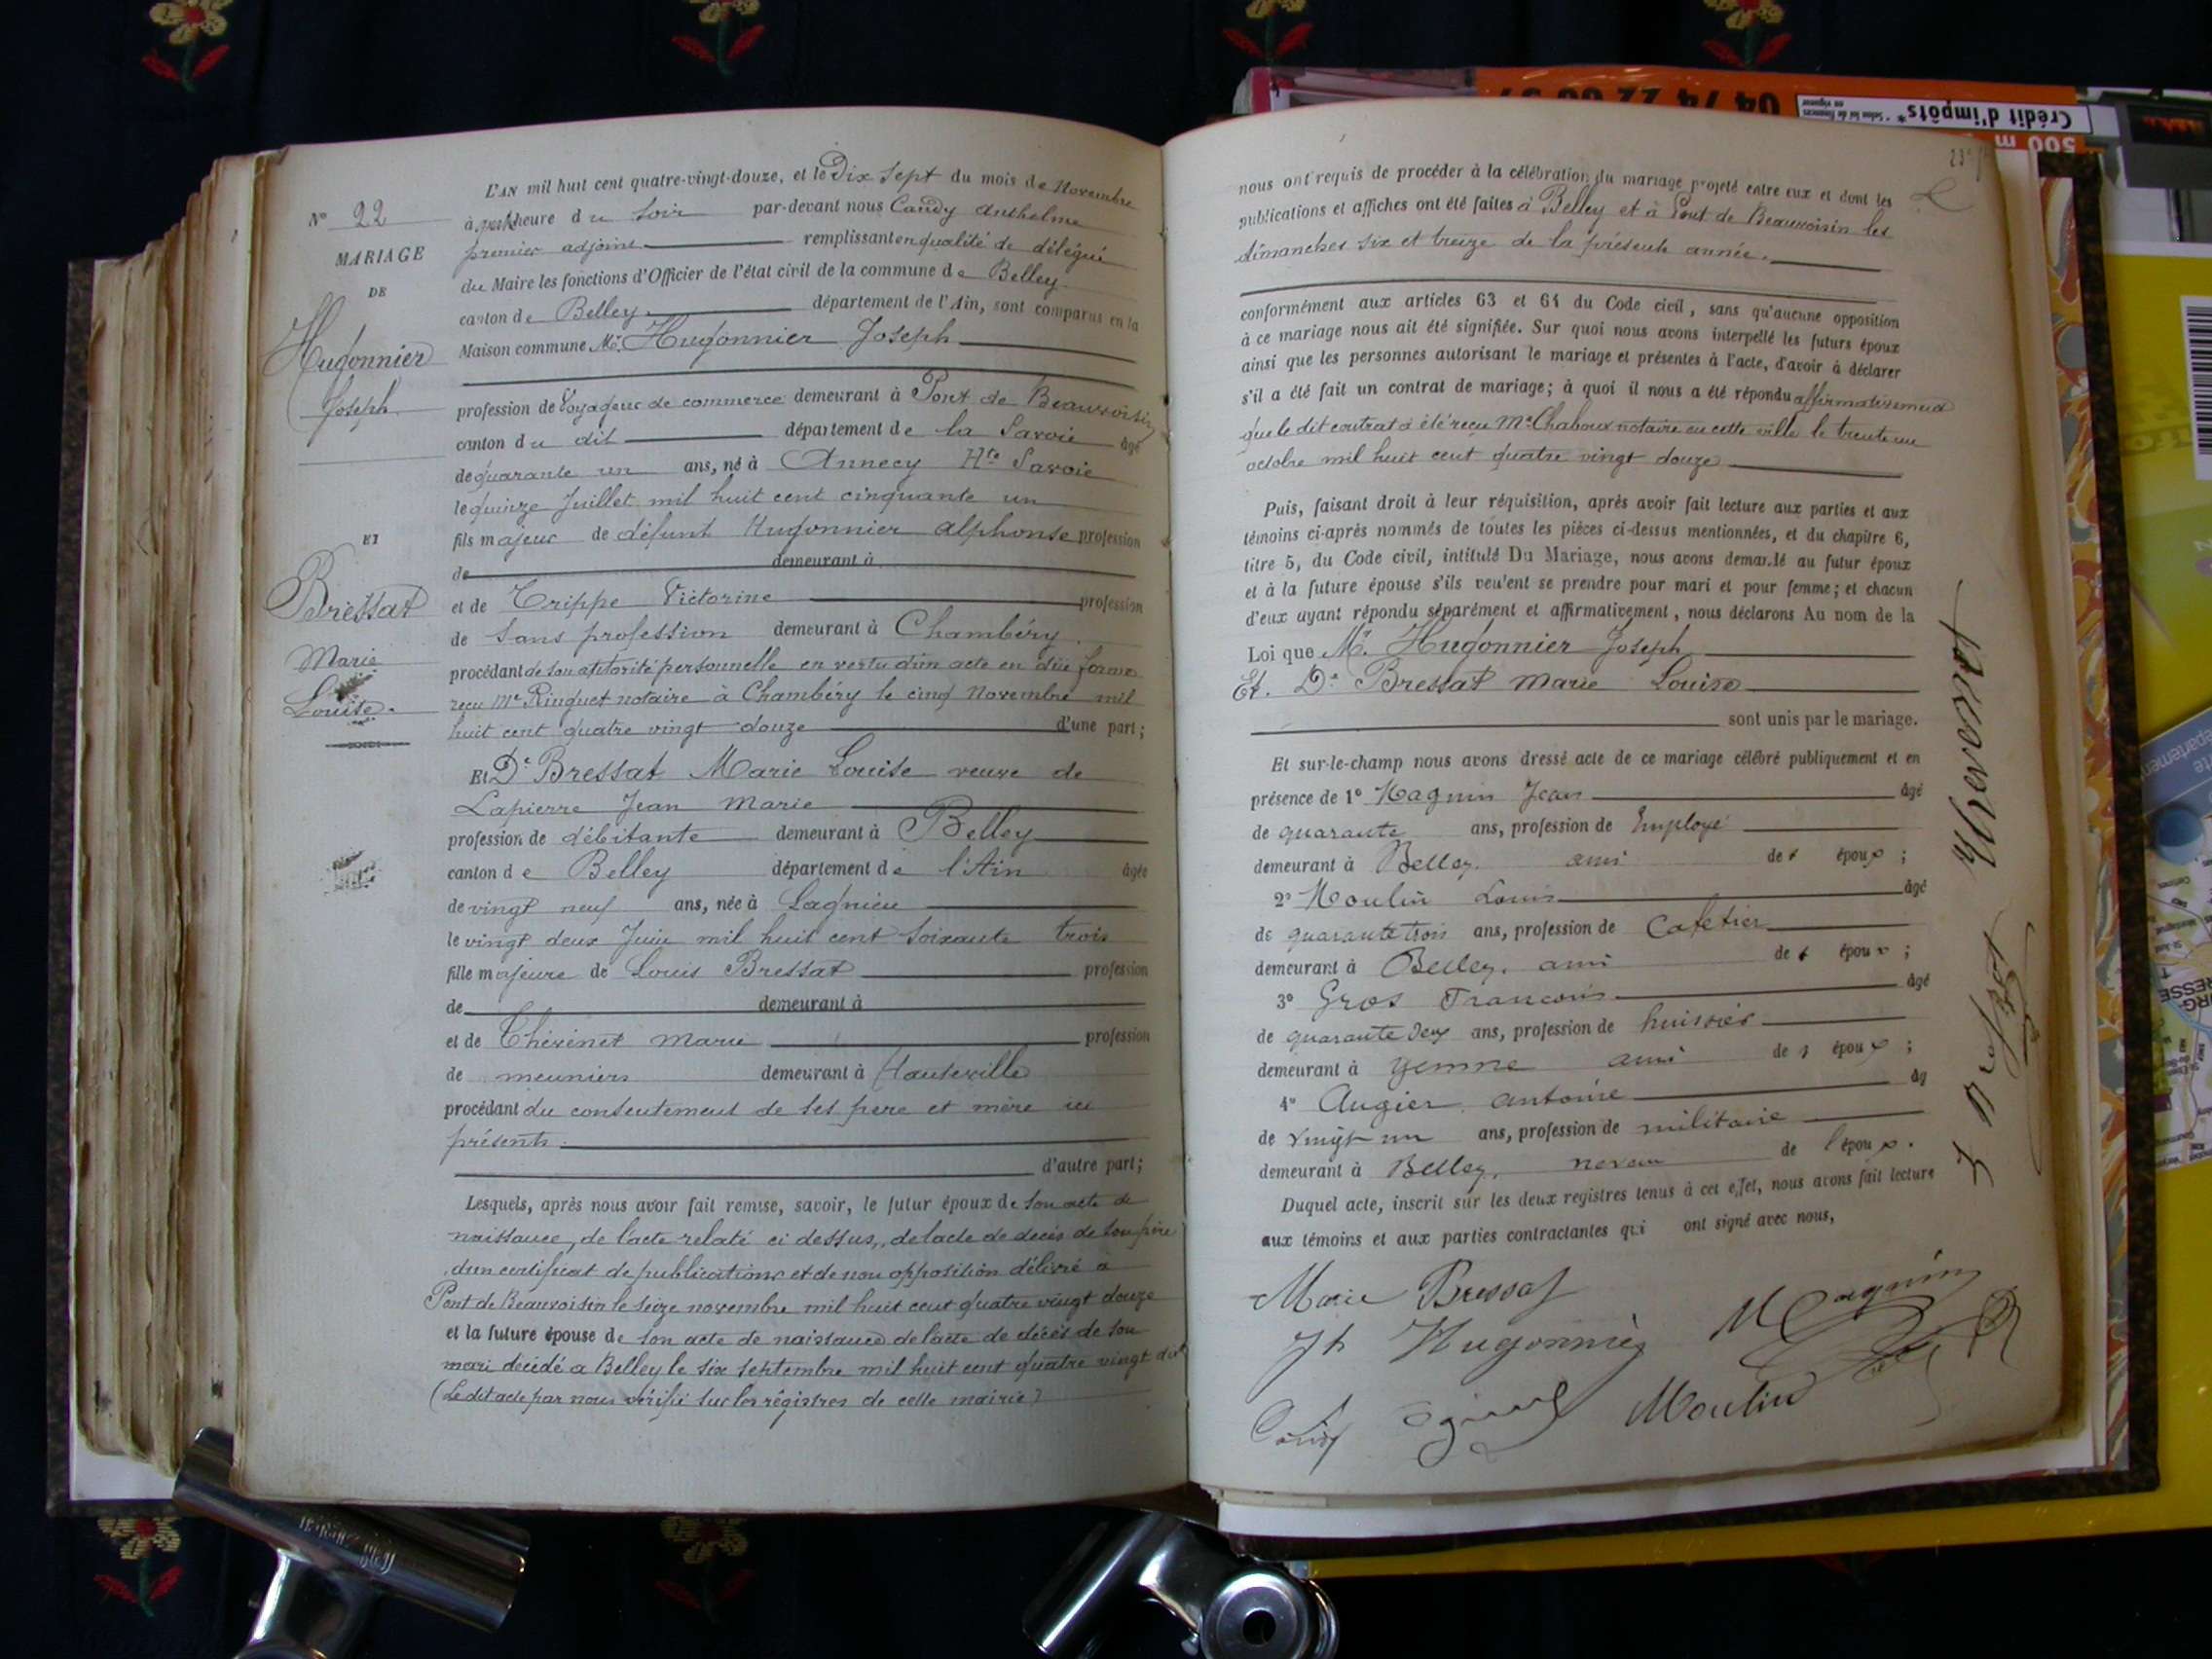 L'AN mil huit cent quatre-vingt-douze, et le Dix Sept du mois de Novembre
N° 22
à heure du Soir par-devant nous Candy Anthelme
premier adjoint remplissant en qualité de délégué
MARIAGE
du Maire les fonctions d'Officier de l'état civil de la commune de Belley
DE
canton de Belley département de l'Ain, sont comparus en la
Hugonnier
Maison commune Mr. Hugonnier Joseph
Joseph
profession de Voyageur de commerce demeurant à Pont de Beauvoisin
canton du dit département de la Savoie âgé
de quarante un ans, né à Annecy Hte Savoie
le quinze Juillet mil huit cent cinquante un
ET
fils majeur de défunt Hugonnier Alphonse profession
de demeurant à
Bressat
et de Trippe Victorine profession
de Sans profession demeurant à Chambéry.
Marie
procédant de son autorité personnelle en vertu d'un acte en düe forme
Louise.
reçu Me Ringuet notaire à Chambéry le cinq Novembre mil
huit cent quatre vingt douze d'une part;
Et De Bressat Marie Louise veuve de
Lapierre Jean Marie
profession de débitante demeurant à Belley
canton de Belley département de l'Ain âgée
de vingt neuf ans, née à Lagnieu
le vingt deux Juin mil huit cent soixante trois
fille majeure de Louis Bressat profession
de demeurant à
et de Thévenet Marie profession
de meuniers demeurant à Hauteville
procédant du consentement de ses père et mère ici
présents.
d'autre part;
Lesquels, après nous avoir fait remise, savoir, le futur époux de son acte de
naissance, de l'acte relaté ci dessus, de l'acte de décès de son père
d'un certificat de publications et de non opposition délivré à
Pont de Beauvoisin le seize novembre mil huit cent quatre vingt douze
et la future épouse de son acte de naissance de l'acte de décès de son
mari décédé a Belley le six septembre mil huit cent quatre vingt dix
(Le dit acte par nous vérifié sur les régistres de cette mairie)
23e
nous ont requis de procéder à la célébration du mariage projeté entre eux et dont les
publications et affiches ont été faites à Belley et à Pont de Beauvoisin les
dimanches six et treize de la présente année.
conformément aux articles 63 et 64 du Code civil, sans qu'aucune opposition
à ce mariage nous ait été signifiée. Sur quoi nous avons interpellé les futurs époux
ainsi que les personnes autorisant le mariage et présentes à l'acte, d'avoir à déclarer
s'il a été fait un contrat de mariage; à quoi il nous a été répondu affirmativement
que le dit contrat a été reçu Me Chaboux notaire en cette ville le trente un
octobre mil huit cent quatre vingt douze
Puis, faisant droit à leur réquisition, après avoir fait lecture aux parties et aux
témoins ci-après nommés de toutes les pièces ci-dessus mentionnées, et du chapitre 6,
titre 5, du Code civil, intitulé Du Mariage, nous avons demandé au futur époux
et à la future épouse s'ils veulent se prendre pour mari et pour femme; et chacun
d'eux ayant répondu séparément et affirmativement, nous déclarons Au nom de la
Loi que Mr. Hugonnier Joseph
Et. De Bressat Marie Louise
sont unis par le mariage.
Et sur-le-champ nous avons dressé acte de ce mariage célébré publiquement et en
présence de 1° Magnin Jean âgé
de quarante ans, profession de Employé
demeurant à Belley. ami de époux;
2° Moulin Louis âgé
de quarante trois ans, profession de Cafetier
demeurant à Belley. ami de époux;
3° Gros Francois âgé
de quarante deux ans, profession de huissier
demeurant à Yenne ami de époux;
4° Augier antoine âg
de vingt un ans, profession de militaire
demeurant à Belley. neveu de l'époux.
Duquel acte, inscrit sur les deux registres tenus à cet effet, nous avons fait lecture
aux témoins et aux parties contractantes qui ont signé avec nous,
Marie Bressat
Magnin
Jh Hugonnier
Moulin
Candy
Crédit d'impôts*
* Selon loi de finances
en vigueur
500 m